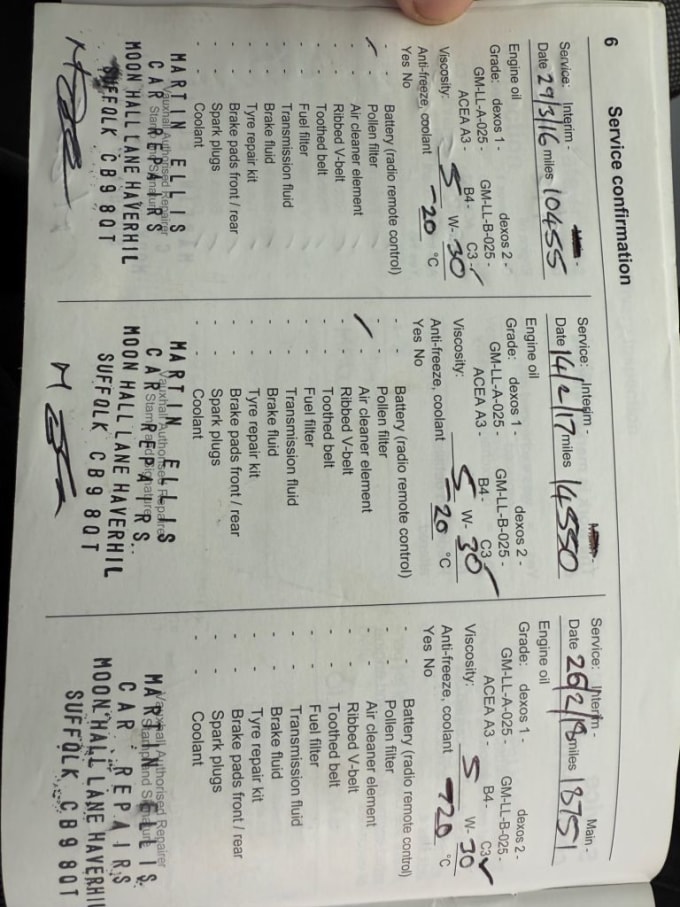 6
Service confirmation
Service: Interim -
Date 29/3/16 miles 10455
Engine oil
Grade: dexos 1 - dexos 2 -
GM-LL-A-025 - GM-LL-B-025 -
ACEA A3 - B4- C3 - ✓
Viscosity: 5 W- 30
Anti-freeze, coolant -20 °C
Yes No
- - Battery (radio remote control)
✓ - Pollen filter
- - Air cleaner element
- - Ribbed V-belt
- - Toothed belt
- - Fuel filter
- - Transmission fluid
- - Brake fluid
- - Tyre repair kit
- - Brake pads front / rear
- - Spark plugs
- - Coolant
Vauxhall Authorised Repairer
Stamp and Signature
MARTIN ELLIS
CAR REPAIRS
MOON HALL LANE HAVERHIL
SUFFOLK CB9 8QT
Service: Interim -
Date 14/2/17 miles 14550
Engine oil
Grade: dexos 1 - dexos 2 -
GM-LL-A-025 - GM-LL-B-025 -
ACEA A3 - B4- C3 ✓
Viscosity: 5 W- 30
Anti-freeze, coolant -20 °C
Yes No
- - Battery (radio remote control)
- - Pollen filter
✓ - Air cleaner element
- - Ribbed V-belt
- - Toothed belt
- - Fuel filter
- - Transmission fluid
- - Brake fluid
- - Tyre repair kit
- - Brake pads front / rear
- - Spark plugs
- - Coolant
Vauxhall Authorised Repairer
Stamp and Signature
MARTIN ELLIS
CAR REPAIRS.
MOON HALL LANE HAVERHIL
SUFFOLK CB9 8QT
Service: Interim - Main -
Date 26/2/18 miles 18751
Engine oil
Grade: dexos 1 - dexos 2 -
GM-LL-A-025 - GM-LL-B-025 -
ACEA A3 - B4- C3 ✓
Viscosity: 5 W- 30
Anti-freeze, coolant -20 °C
Yes No
- - Battery (radio remote control)
- - Pollen filter
- - Air cleaner element
- - Ribbed V-belt
- - Toothed belt
- - Fuel filter
- - Transmission fluid
- - Brake fluid
- - Tyre repair kit
- - Brake pads front / rear
- - Spark plugs
- - Coolant
Vauxhall Authorised Repairer
Stamp and Signature
MARTIN ELLIS
CAR REPAIRS
MOON HALL LANE HAVERHIL
SUFFOLK CB9 8QT